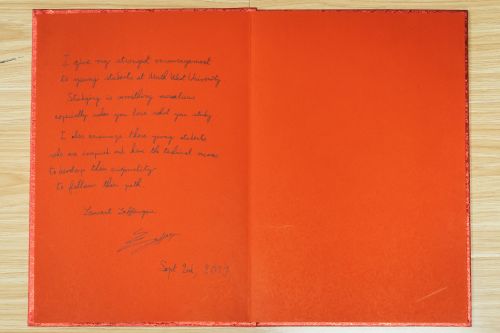 I give my strongest encouragement
to young students at North West University
Studying is something marvelous
especially when you love what you study
I also encourage those young students
who are inspired and have the technical means
to develop their originality
to follow their path.
Laurent Lafforgue
Sept 2nd, 2023